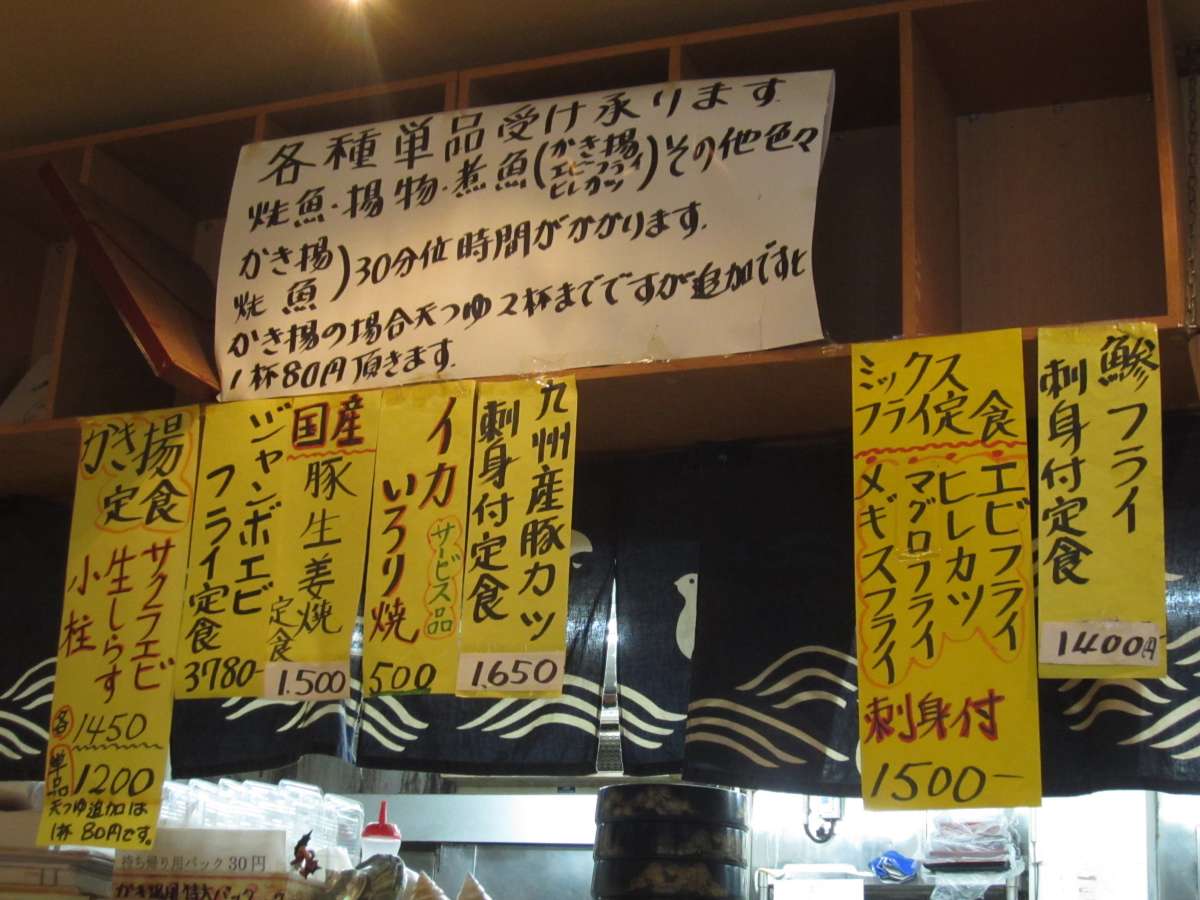 各種単品受け承ります
焼魚・揚物・煮魚(かき揚 エビフライ ヒレカツ)その他色々
かき揚
焼魚)30分位時間がかかります.
かき揚の場合天つゆ2杯までですが追加ですと
1杯80円頂きます.
かき揚
定食
サクラエビ
生しらす
小柱
各1450
単品1200
天つゆ追加は
1杯80円です。
ジャンボエビ
フライ定食
3780-
国産
豚生姜焼
定食
1.500
イカ
いろり焼
サービス品
500
九州産豚カツ
刺身付定食
1.650
ミックス
フライ定食
エビフライ
ヒレカツ
マグロフライ
メギスフライ
刺身付
1500-
鯵フライ
刺身付定食
1400円
持ち帰り用パック30円
かき揚用特大パック